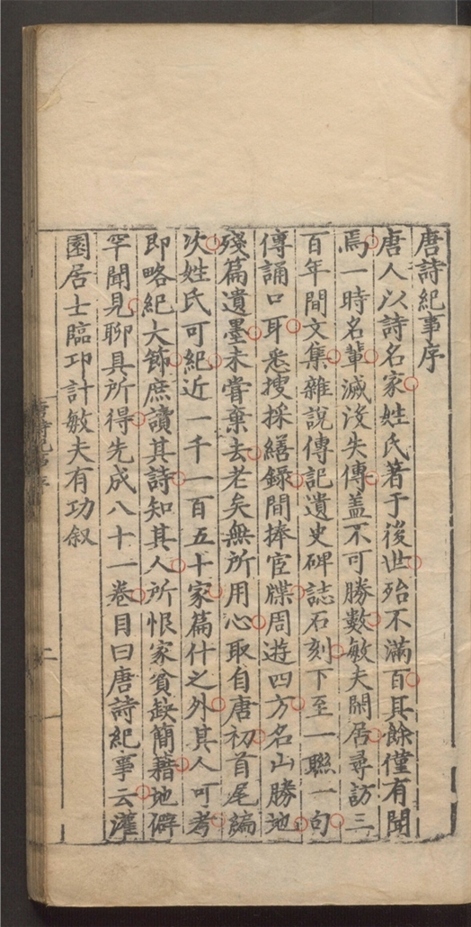 唐詩紀事序
唐人以詩名家姓氏著于後世殆不滿百其餘僅有聞
焉一時名輩滅没失傳蓋不可勝數敏夫閒居尋訪三
百年間文集雜說傳記遺史碑誌石刻下至一聯一句
傳誦口耳悉搜採繕錄間捧宦牒周遊四方名山勝地
殘篇遺墨未甞棄去老矣無所用心取自唐初首尾編
次姓氏可紀近一千一百五十家篇什之外其人可考
即略紀大節庶讀其詩知其人所恨家貧缺簡籍地僻
罕聞見聊具所得先成八十一卷目曰唐詩紀事云灌
園居士臨卭計敏夫有功叙
二